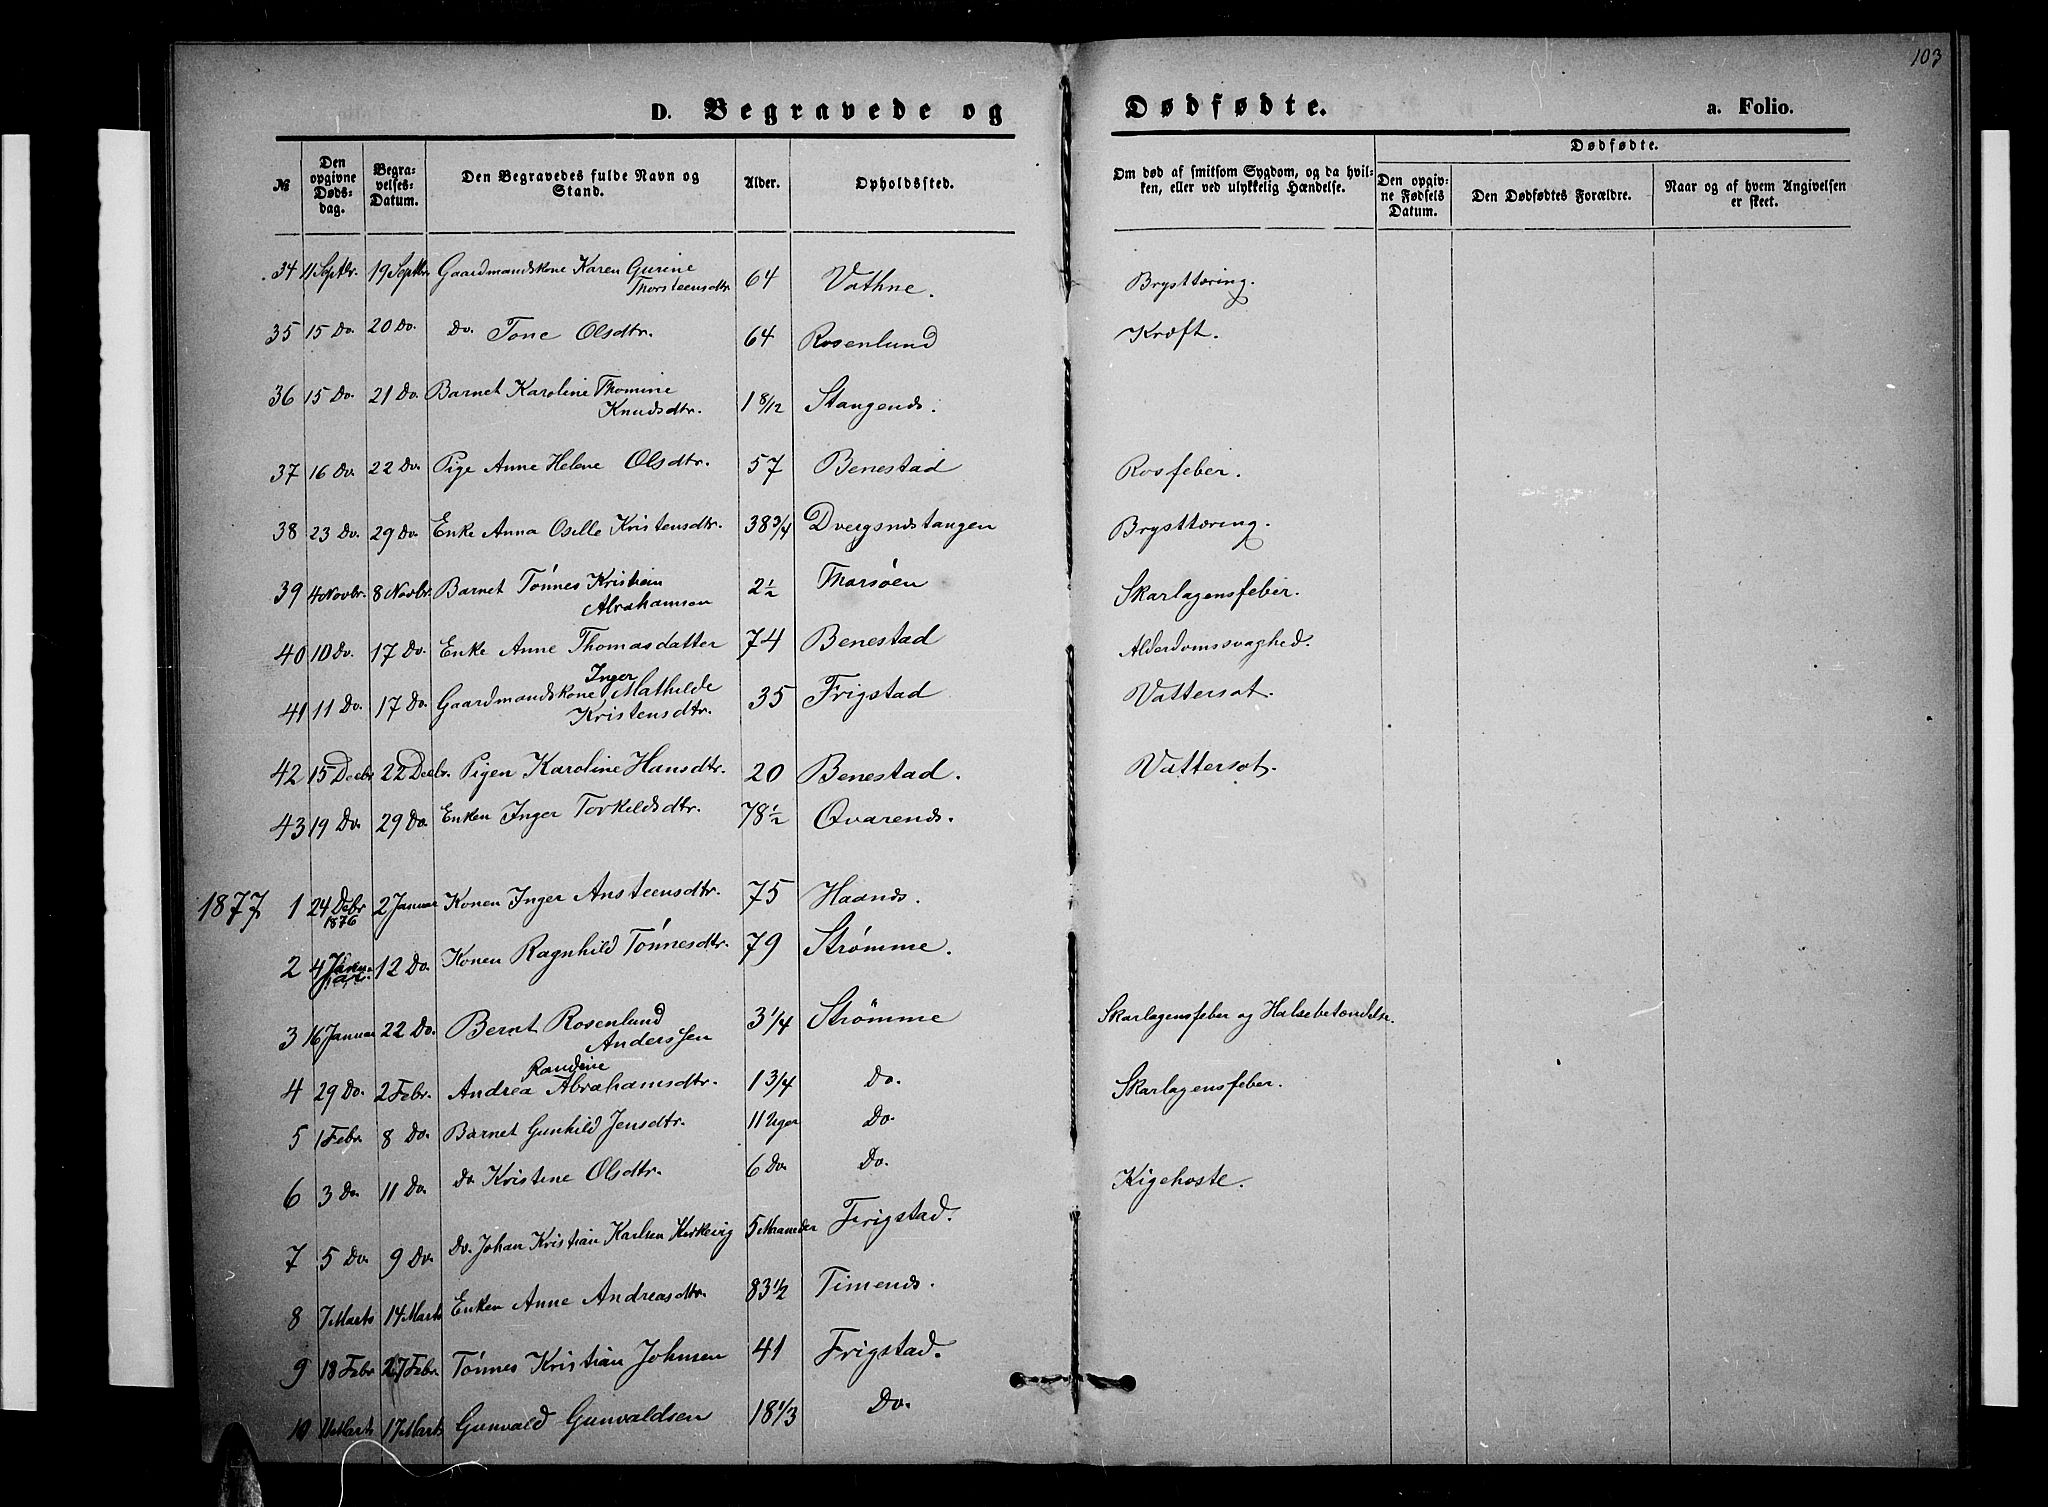 103
D. Begravede og Dødfødte. a. Folio.
№
Den opgivne Døds-dag.
Begra-velses-Datum.
Den Begravedes fulde Navn og Stand.
Alder.
Opholdssted.
Om død af smitsom Sygdom, og da hvil-ken, eller ved ulykkelig Hændelse.
Dødfødte.
Den opgiv-ne Fødsels Datum.
Den Dødfødtes Forældre.
Naar og af hvem Angivelsen er skeet.
34 11 Septbr. 19 Septbr. Gaardmandskone Karen Gurine Thorsteensdtr 64 Vathne. Brysttæring.
35 15 Do. 20 Do. Do. Tone Olsdtr. 64 Rosenlund Kræft.
36 15 Do. 21 Do. Barnet Karoline Thomine Knudsdtr. 1 8/12 Stangends.
37 16 Do. 22 Do. Pige Anne Helene Olsdtr. 57 Benestad Rosfeber.
38 23 Do. 29 Do. Enke Anna Oselle Kristensdtr. 38 3/4 Dvergsnestangen Brysttæring.
39 4 Novbr. 8 Novbr. Barnet Tönnes Kristian Abrahamsen 2 1/2 Thorsöen Skarlagensfeber.
40 10 Do. 17 Do. Enke Anne Thomasdatter 74 Benestad Alderdomssvaghed.
41 11 Do. 17 Do. Gaardmandskone Inger Mathilde Kristensdtr. 35 Frigstad Vattersot.
42 15 Decbr 22 Decbr. Pigen Karoline Hansdtr. 20 Benestad. Vattersot.
43 19 Do. 29 Do. Enken Inger Torkeldsdtr. 78 1/2 Qvarends.
1877 1 24 Debr 1876 2 Januar Konen Inger Ansteensdtr. 75 Haands.
2 4 Januar. 12 Do. Konen Ragnhild Tönnesdtr. 79 Strømme.
3 16 Januar 22 Do. Bernt Rosenlund Anderssen 3 1/4 Strömme Skarlagensfeber og Halsebetændelse.
4 29 Do. 2 Febr. Andrea Randine Abrahamsdtr. 1 3/4 Do. Skarlagensfeber.
5 1 Febr. 8 Do. Barnet Gunhild Jensdtr. 11 Uger Do.
6 3 Do. 11 Do. Do. Kristine Olsdtr. 6 Do. Do. Kigehoste.
7 5 Do. 9 Do. Do. Johan Kristian Karlsen Kirkevig 5 Maaneder Frigstad.
8 7 Marts 14 Marts Enken Anne Andreasdtr. 83 1/2 Timends.
9 18 Febr 27 Febr. Tönnes Kristian Johnsen 41 Frigstad.
10 11 Marts 17 Marts Gunvald Gunvaldsen 18 1/3 Do.